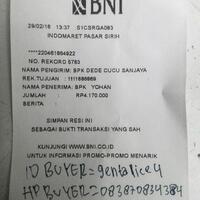 BNI
29/02/16 13:37 S1CSRGA083
INDOMARET PASAR SIRIH
****220461864922
NO. REKORD 5783
NAMA PENGIRIM: BPK DEDE CUCU SANJAYA
REK.TUJUAN : 1111868869
NAMA PENERIMA: BPK YOHAN
JUMLAH RP4.170.000
BERITA
SIMPAN RESI INI
SEBAGAI BUKTI TRANSAKSI YANG SAH
KUNJUNGI WWW.BNI.CO.ID
UNTUK INFORMASI PROMO-PROMO MENARIK
ID BUYER = gentalice4
HP BUYER = 083870834384